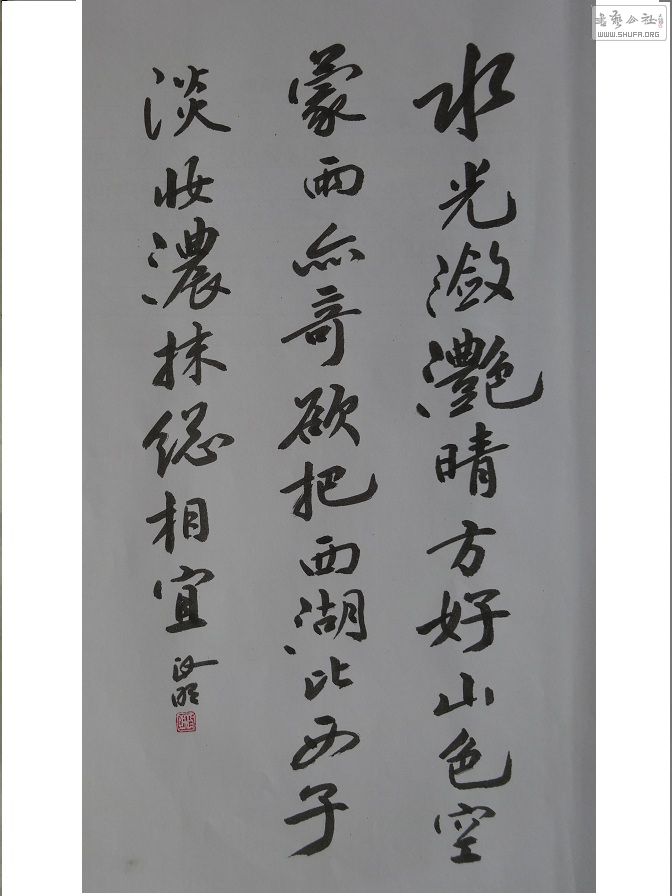 水光潋灧晴方好山色空
蒙雨亦奇欲把西湖比西子
淡妝濃抹総相宜
书艺公社
WWW.SHUFA.ORG